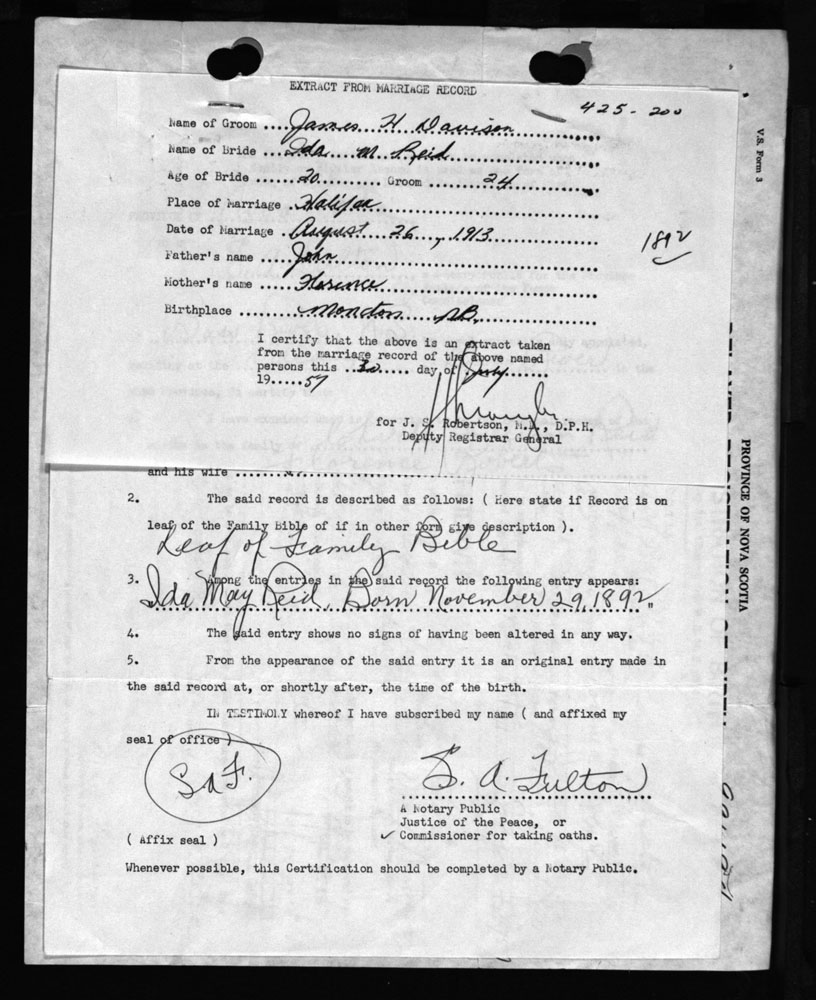 EXTRACT FROM MARRIAGE RECORD
425 - 200
Name of Groom ... James H Davison
Name of Bride ... Ida M. Reid
Age of Bride ...... 20 ........... Groom ........ 24
Place of Marriage . Halifax
Date of Marriage . August 26, 1913
1892
Father's name ... John
Mother's name ... Florence
Birthplace ........ Moncton NB.
I certify that the above is an extract taken
from the marriage record of the above named
persons this ..30..... day of July.......
19.....57
for J. S. Robertson, M.D., D.P.H.
Deputy Registrar General
and his wife
2. The said record is described as follows: ( Here state if Record is on
leaf of the Family Bible of if in other form give description ).
Leaf of Family Bible
3. Among the entries in the said record the following entry appears:
Ida May Reid, Born November 29, 1892"
4. The said entry shows no signs of having been altered in any way.
5. From the appearance of the said entry it is an original entry made in
the said record at, or shortly after, the time of the birth.
IN TESTIMONY whereof I have subscribed my name ( and affixed my
seal of office )
S A F.
S. A. Fulton
A Notary Public
Justice of the Peace, or
✓ Commissioner for taking oaths.
( Affix seal )
Whenever possible, this Certification should be completed by a Notary Public.
V.S. Form 3
PROVINCE OF NOVA SCOTIA